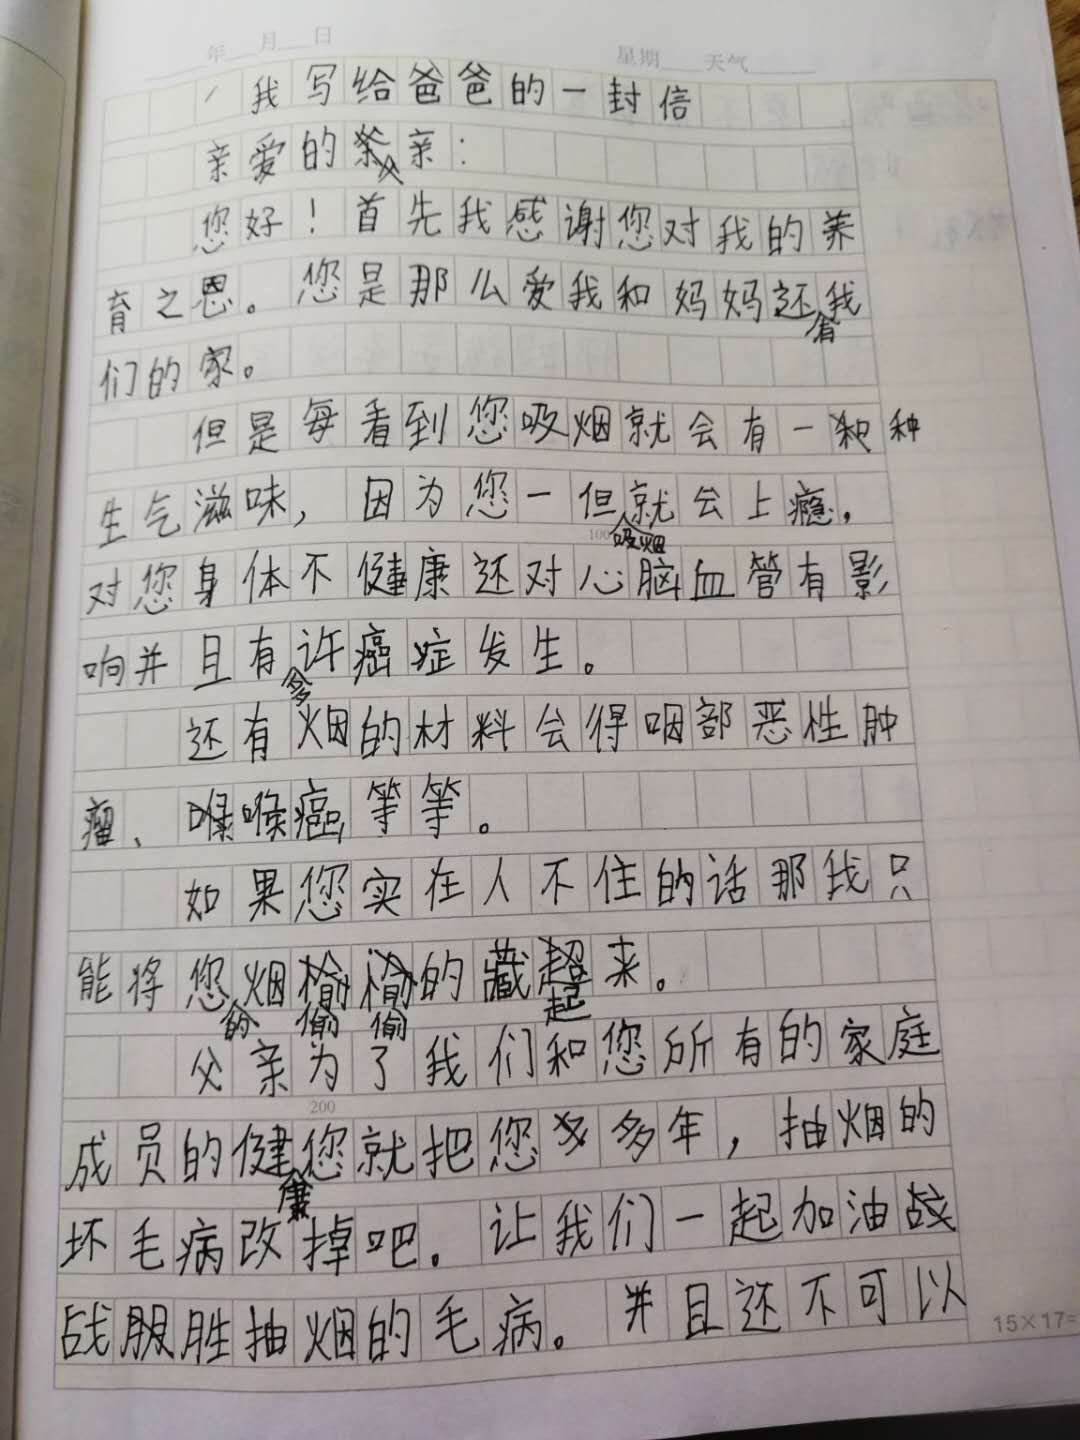 年 月 日
星期 天气
我写给爸爸的一封信
亲爱的父亲：
您好！首先我感谢您对我的养
育之恩。您是那么爱我和妈妈还有我
们的家。
但是每看到您吸烟就会有一种
生气滋味，因为您一但吸烟就会上瘾，
对您身体不健康还对心脑血管有影
响并且有许多癌症发生。
还有烟的材料会得咽部恶性肿
瘤、喉喉癌等等。
如果您实在人不住的话那我只
能将您的烟偷偷的藏起来。
父亲为了我们和您所有的家庭
200
成员的健康您就把您多多年，抽烟的
坏毛病改掉吧。让我们一起加油战
战服胜抽烟的毛病。并且还不可以
15×17=